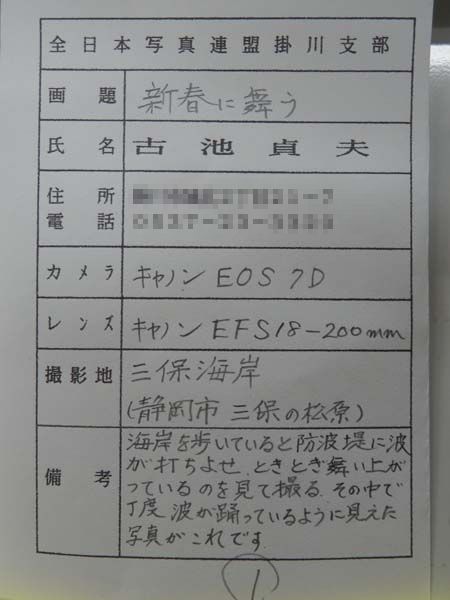 全日本写真連盟掛川支部
画題 新春に舞う
氏名 古池貞夫
住所
電話
カメラ キャノン EOS 7D
レンズ キャノン EFS18-200mm
撮影地 三保海岸
(静岡市 三保の松原)
備考 海岸を歩いていると防波堤に波
が打ちよせ、ときとぎ舞い上が
っているのを見て撮る。その中で
丁度 波が踊っているように見えた
写真がこれです。
1